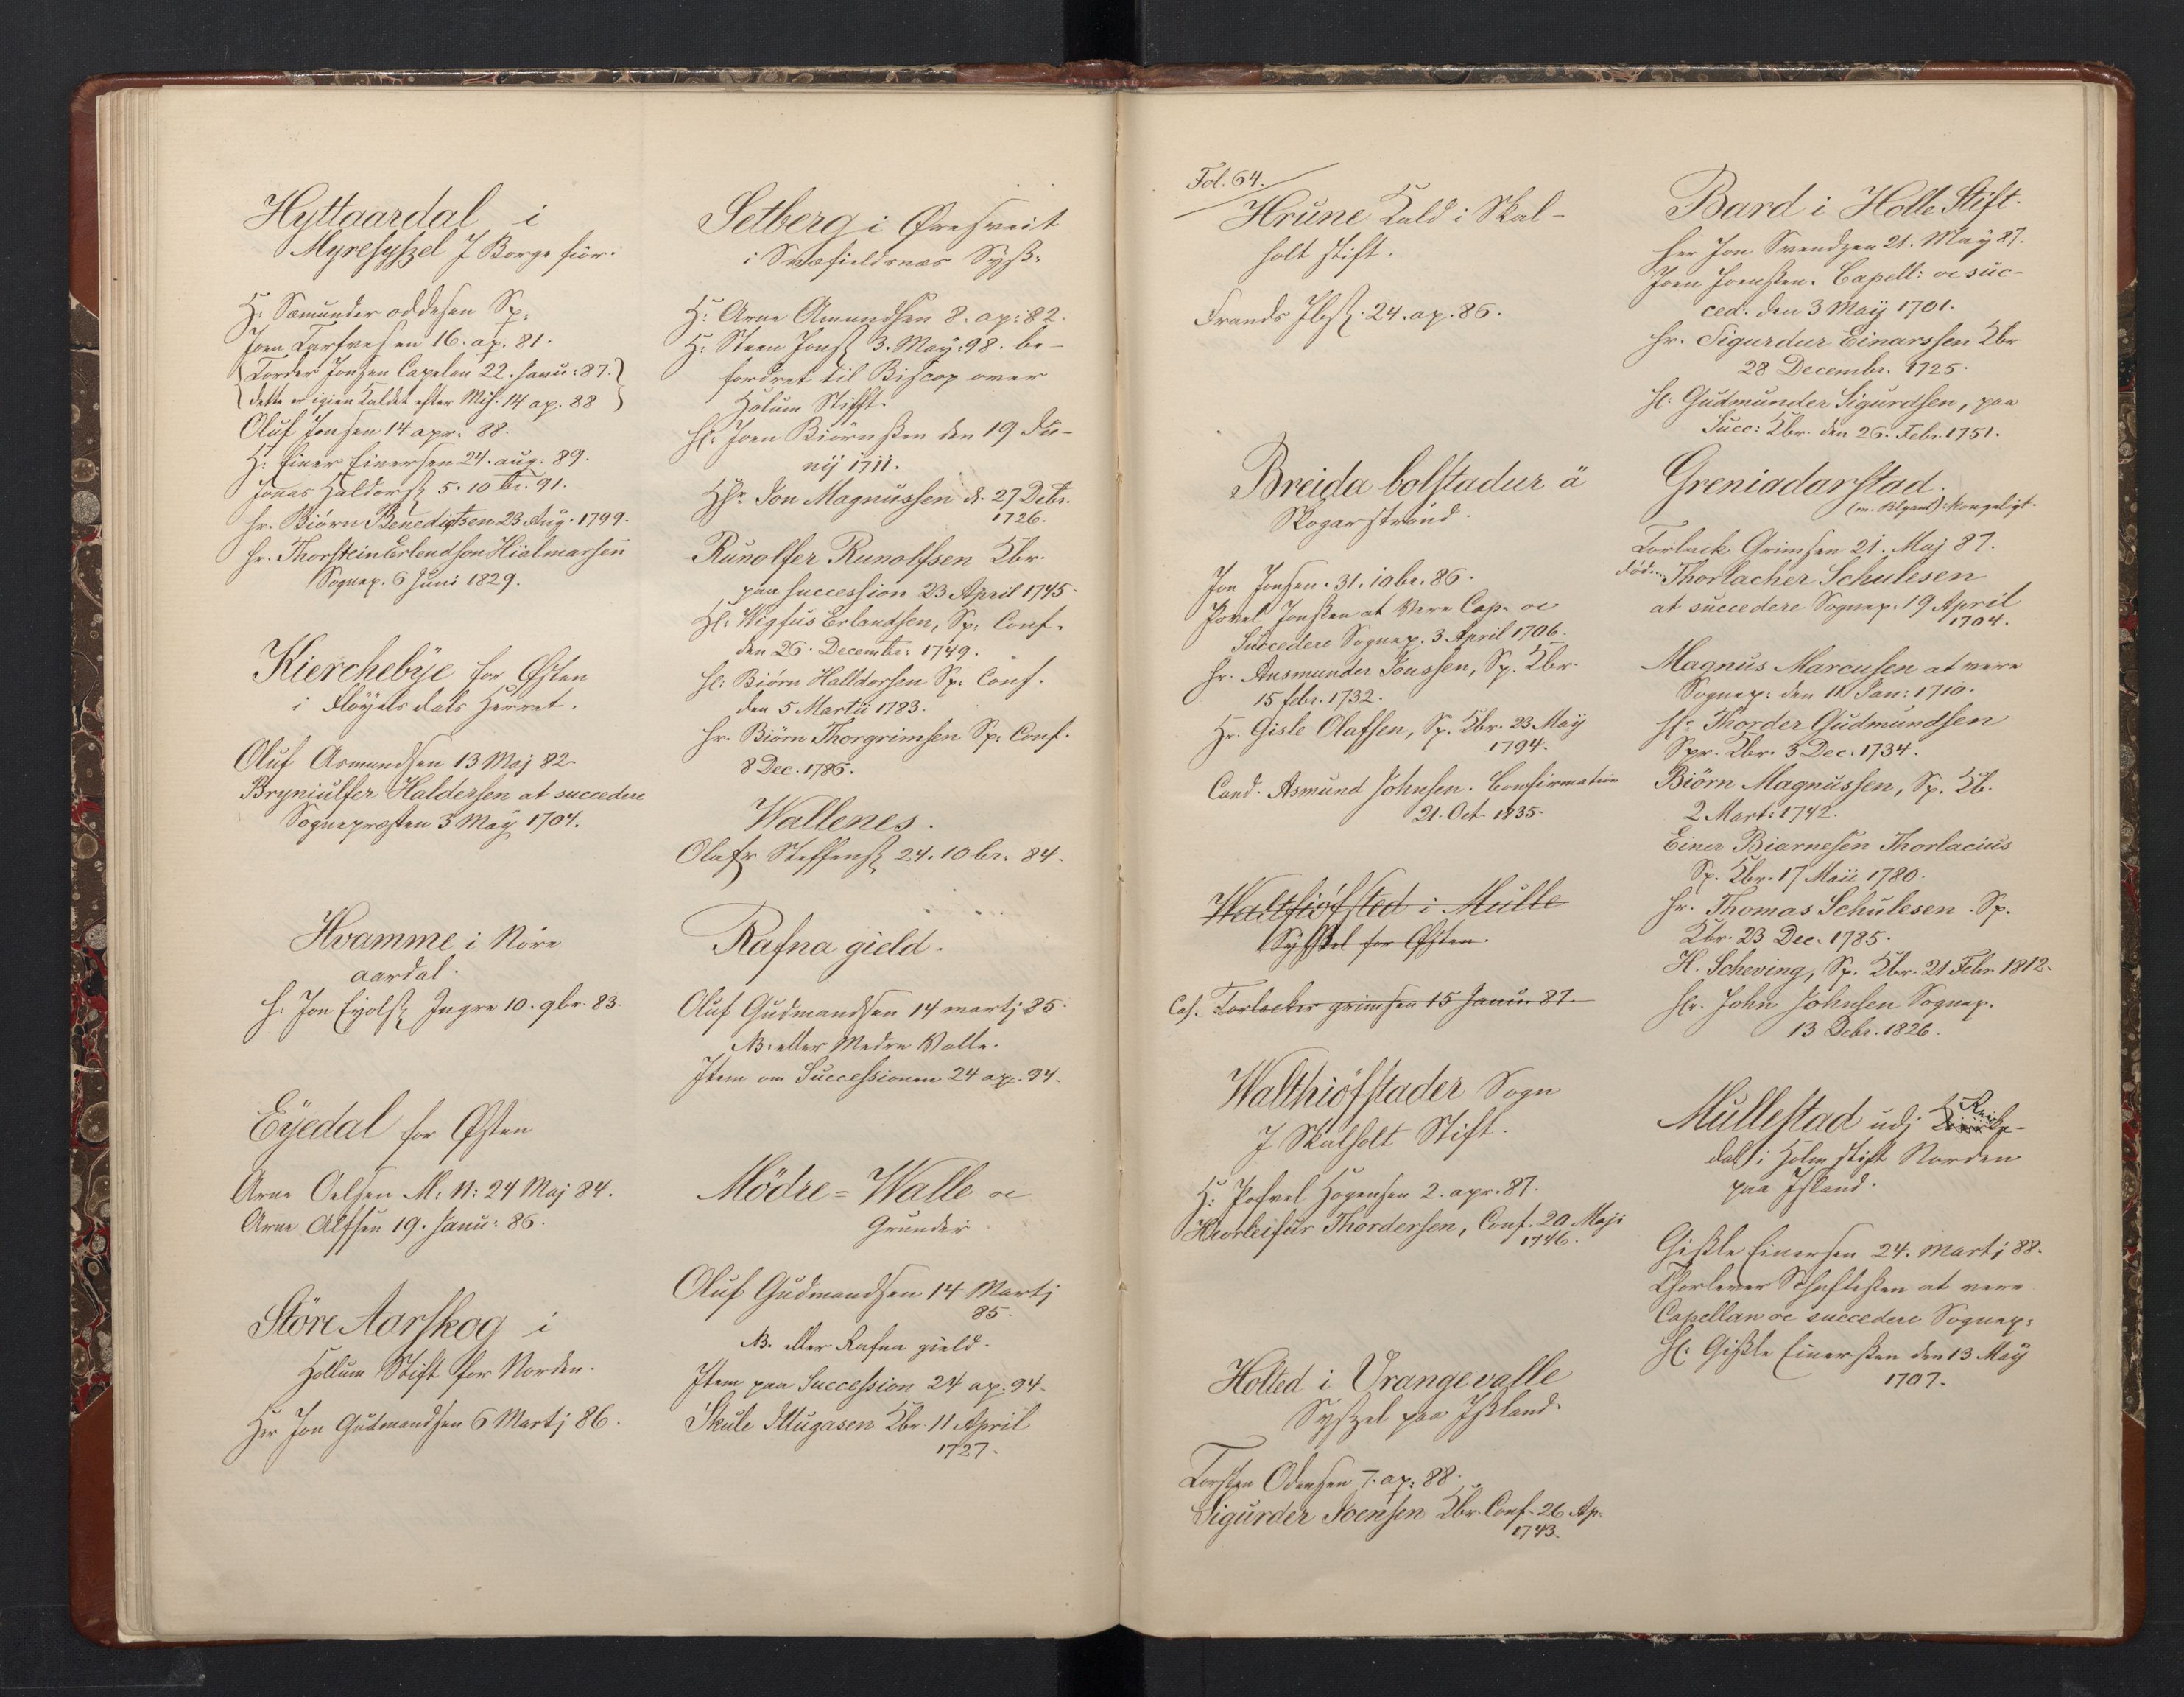 Hyttaardal i
Myresyszel J Borge fiör.
H: Sæmunder oddesen Sp.
Joen Torfvesen 16. ap. 81.
Torder Jonsen Capelan 22. Janu: 87.
dette er igien kaldet efter Miss. 14 ap. 88
Oluf Jonsen 14 apr. 88.
H: Einer Einersen 24. aug. 89.
Jonas Haldors. 5. 10 br. 91.
Hr. Biörn Benedigtsen 23 Aug. 1799.
Hr. Thorstein Erlendson Hialmarsen
Sognep. 6 Juni 1829.
Kierchebÿe for Østen
i Flöyels dals Herret.
Oluf Asmundsen 13 Maj 82
Bryniulfer Haldersen at succedere
Sognepræsten 3 Maÿ 1704.
Hvamme i Nöre
aardal.
H. Jon Eyolfs. Ingre 10. 9br. 83.
Eÿedal for Østen
Arne Oelsen M: 11: 24 Maj 84.
Arne Alfsen 19. Janu: 86.
Störe Aarskog i
Hollum Stift for Norden.
Her Jon Gudmandsen 6 Martj 86.
Setberg i Öresveit
i Snæfieldsnæs Syß:
H: Arne Amundsen 8. ap: 82.
H: Steen Jons. 3. Maÿ. 98. be-
fordret til Biscop over
Holum Stifft.
Hr: Joen Biörnsten den 19 Ju-
nij 1711.
Hr. Jon Magnussen d. 27 Decbr.
1726.
Runolfer Runolfsen Kbr.
paa succession 23 April 1745.
Hr: Wigfus Erlandsen, Sp: Conf.
den 26. Decembr: 1749.
Hr: Biörn Halldorsen Sp: Conf.
den 5 Martii 1783.
Hr. Biörn Thorgrimsen Sp: Conf.
8 Dec. 1786.
Wallenes.
Olafr Steffens. 24. 10 br. 84.
Rafna gield.
Oluf Gudmandsen 14 martj 85.
NB. eller Medre Valle.
Item om Successionen 24 ap. 94.
Mödre=Walle oc
Grunder
Oluf Gudmandsen 14 Martj
85.
NB. eller Rafna gield.
Item paa Succession 24 ap. 94.
Skule Illugasen Kbr. 11 April
1727.
Fol. 64.
Hrune Kald i Skal-
holt stift.
Frands Ibs. 24. ap. 86.
Breida bolstadur ä
Skogarstrønd.
Jon Jonsen. 31. 10br. 86.
Povel Jonsten at være Cap. oc
Succedere Sognep. 3 April 1706.
Hr. Ausmunder Jonssen, Sp. Kbr.
15 febr. 1732.
Hr. Gisle Olafsen, Sp. Kbr. 23 Maÿ
1794.
Cand. Asmund Johnsen. Confirmation
21. Oct. 1835.
Walthiöfsted i Mulle
Sÿssel for Østen.
Cas. Torlacker grimsen 15 Janu. 87.
Walthiöfstader Sogn
J Skalholt Stift.
H: Pofvel Hogensen 2. apr. 87.
Hiorleifur Thordersen, Conf. 20 Maji
1746.
Holted i Vrangevalle
Syszel paa Jsland.
Torsten Odensen 7. ap: 88.
Sigurder Joensen Kbr. Conf. 26 Ap.
1743.
Bard i Holle Stift.
Her Jon Svendzen 21. Maÿ 87.
Joen Joensten. Capell: oc suc-
ced. den 3 Maij 1701.
Hr. Sigurdur Einarssen Kbr
28 Decembr. 1725.
Hr: Gudmunder Sigurdsen, paa
Succ: Kbr. den 26. Febr. 1751.
Greniadarstad.
(m. Blyant): kongeligt.
Torlack Grimsen 21. Maj 87.
död... Thorlacher Schulesen
at succedere Sognep. 19 April
1704.
Magnus Marcusen at være
Sognep: den 11 Jan: 1710.
Hr. Thorder Gudmundsen
Spr. Kbr. 3 Dec. 1734.
Biörn Magnussen, Sp. Kb.
2 Mart: 1742.
Einer Biarnesen Thorlacius
Sp. Kbr. 17 Maii 1780.
Hr. Thomas Schulesen. Sp.
Kbr. 23 Dec. 1785.
H. Scheving, Sp. Kbr. 21 Febr. 1812.
Hr. John Johnsen Sognep.
13 Debr. 1826.
Mullestad udj Reicke-
dal i Holm stift Norden
paa Jsland.
Gißle Einersen 24. Martj 88.
Thorlever Schafteßen at være
Capellan oc succedere Sognep:
Hr: Gißle Einersten den 13 Maÿ
1707.